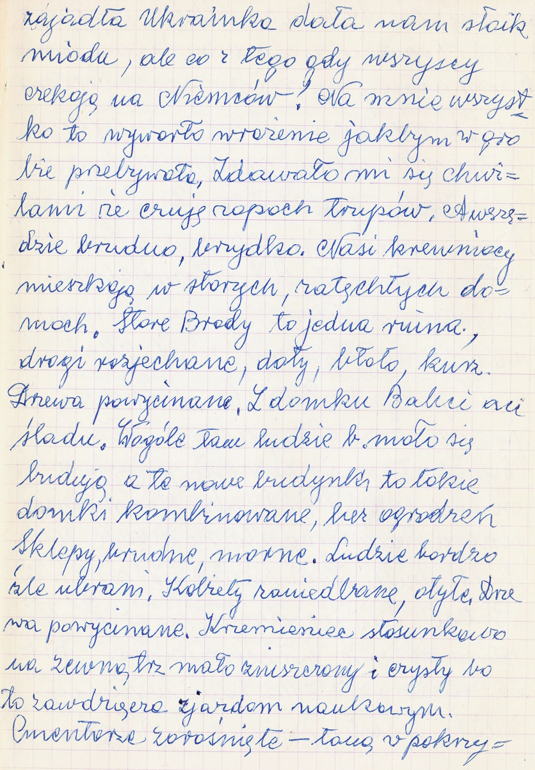 zajadła Ukrainka dała nam słoik
miodu, ale co z tego gdy wszyscy
czekają na Niemców! Na mnie wszyst=
ko to wywarło wrażenie jakbym w gro
bie przebywała, Zdawało mi się chwi=
lami że czuję zapach trupów. A wszę=
dzie brudno, brzydko. Nasi krewniacy
mieszkają w starych, zatęchłych do=
mach. Stare Brody to jedna ruina.,
drogi rozjechane, doły, błoto, kurz.
Drzewa powycinane. Z domku Babci ani
śladu. Wogóle tam ludzie b. mało się
budują a te nowe budynki to takie
domki kombinowane, bez ogrodzeń
Sklepy, brudne, marne. Ludzie bardzo
źle ubrani. Kobiety zaniedbane, otyłe. Drze
wa powycinane. Krzemieniec stosunkowo
na zewnątrz mało zniszczony i czysty bo
to zawdzięcza zjazdom naukowym.
Cmentarze zarośnięte – toną w pokrzy=